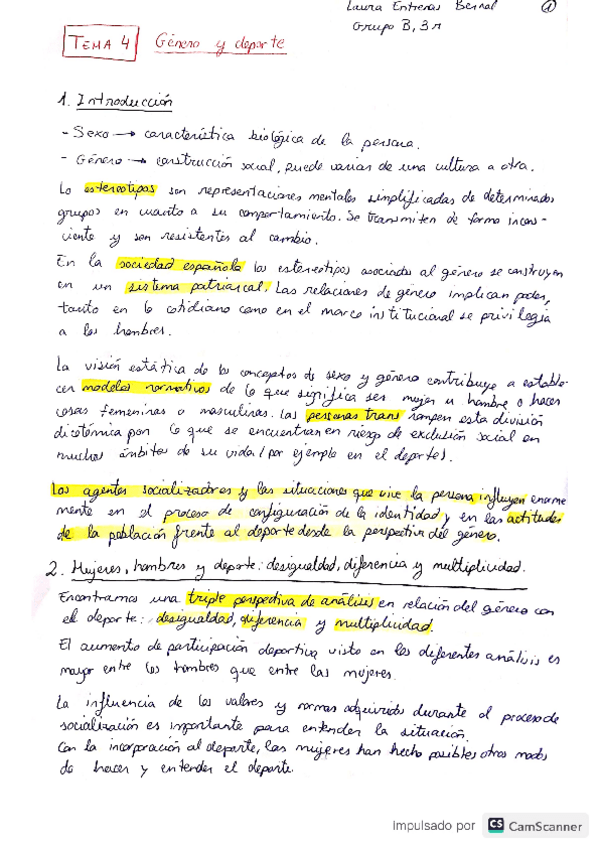 Laura Entrenas Bernal
1
Grupo B, 3º
TEMA 4 Género y deporte
1. Introducción
- Sexo → característica biológica de la persona.
- Género → construcción social, puede variar de una cultura a otra.
Lo estereotipos son representaciones mentales simplificadas de determinados
grupos en cuanto a su comportamiento. Se transmiten de forma incons-
ciente y son resistentes al cambio.
En la sociedad española los estereotipos asociados al género se construyen
en un sistema patriarcal. Las relaciones de género implican poder,
tanto en lo cotidiano como en el marco institucional se privilegia
a los hombres.
La visión estática de los conceptos de sexo y género contribuye a estable-
cer modelos normativos de lo que significa ser mujer u hombre o hacer
cosas femeninas o masculinas. Las personas trans rompen esta división
dicotómica por lo que se encuentran en riesgo de exclusión social en
muchos ámbitos de su vida (por ejemplo en el deporte).
Los agentes socializadores y las situaciones que vive la persona influyen enorme
mente en el proceso de configuración de la identidad y en las actitudes
de la población frente al deporte desde la perspectiva del género.
2. Mujeres, hombres y deporte: desigualdad, diferencia y multiplicidad.
Encontramos una triple perspectiva de análisis en relación del género con
el deporte: desigualdad, diferencia y multiplicidad.
El aumento de participación deportiva visto en los diferentes análisis es
mayor entre los hombres que entre las mujeres.
La influencia de los valores y normas adquiridos durante el proceso de
socialización es importante para entender la situación.
Con la incorporación al deporte, las mujeres han hecho posibles otros modos
de hacer y entender el deporte.
Impulsado por CS CamScanner